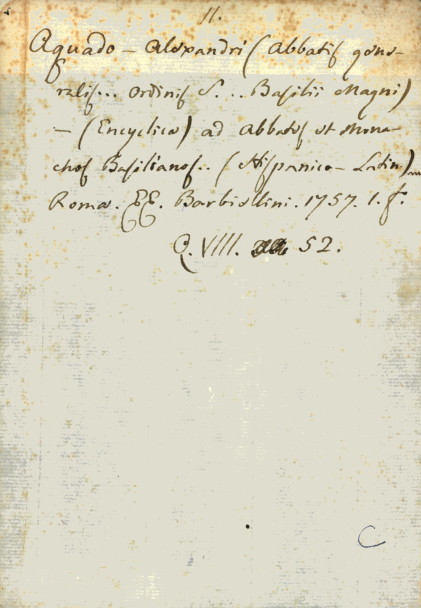 11.
Aquado - Alexandri (Abbatis gene-
ralis... Ordinis S... Basilii Magni)
- (Encyclica) ad Abbates et Mona-
chos Basilianos.. (Hispanice - Latin)
Romae. Barbiellini. 1757. 1. f.
Q. VIIII. 52.
C